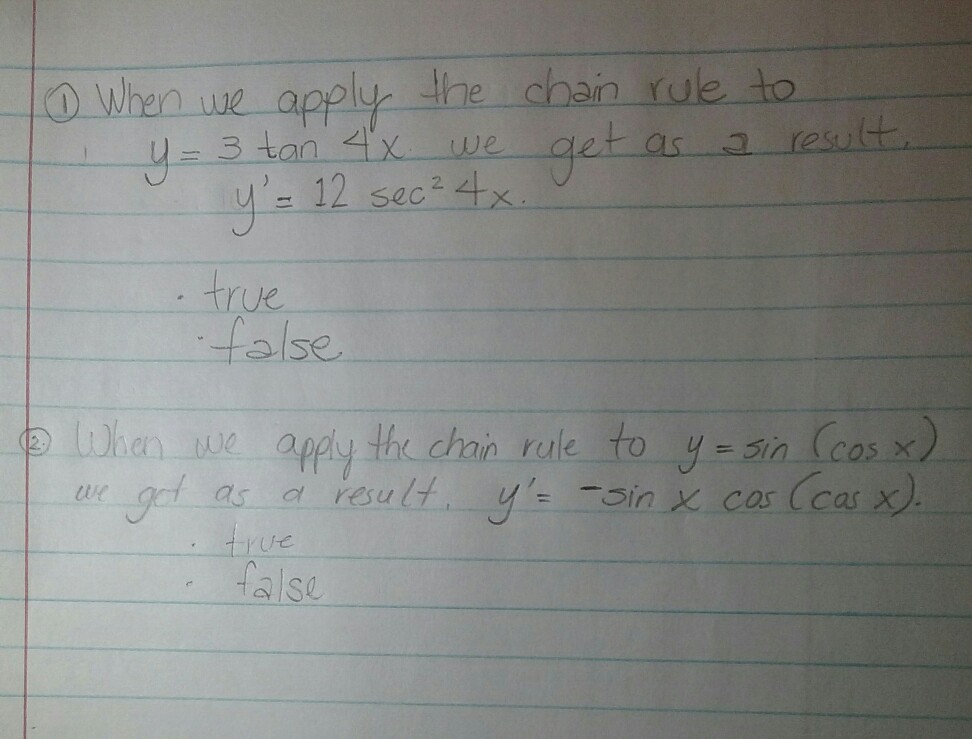 ① When we apply the chain rule to
y = 3 tan 4x. we get as a result.
y' = 12 sec² 4x.
· true
· false
② When we apply the chain rule to y = sin (cos x)
we get as a result. y' = -sin x cos (cos x).
· true
· false